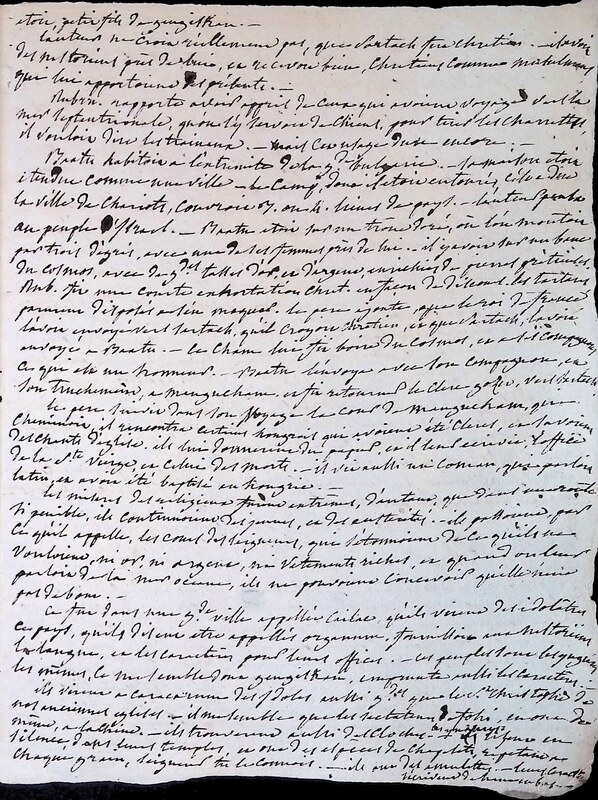 etoit, petit fils de gengiskan. —
L'auteur ne croit réellement pas, que Sartach fut chrétien. — il avoit
des nestoriens près de lui, et recevoit bien, chrétiens comme mahometans
qui lui apportoient des présents. —
Rubru. rapporte avoir appris de ceux qui avoient voyagé vers la
mer septentrionale, qu'on s'y servoit de chiens, pour tirer les charrettes,
il vouloit dire les traineaux. — mais cet usage dure encore. —
Baatu habitoit à l'extremité de la gde bulgarie. — sa maison etoit
etendue comme une ville — le camp, dont il etoit entouré, c'est a dire
la ville de chariots, couvroit 3. ou 4. lieues de pays. — l'auteur
au peuple d'Israel. — Baatu etoit sur un trone doré, où l'on montoit
par trois dégrés, avec une de ses femmes près de lui. — il y avoit sur un banc
du cosmos, avec de gdes tasses d'or, et d'argent, enrichies de pierres précieuses
Rub. fit une courte exhortation chret. les tartares
parurent disposés à s'en moquer. le pere ajouta, que le roi de france
l'avoit envoyé vers Sartach, qu'il croyoit chrétien, et que Sartach, l'avoit
envoyé a Baatu. — Le Cham lui fit boire du cosmos, et a ses compagnons
ce qui est un honneur. — Baatu l'envoya avec son compagnon, et
son truchement, a mangucham. et fit retourner le clerc gozet, vers Sartach.
le pere suivit dans son voyage la cour de mangucham, que
cheminoit, il rencontra certains hongrois qui avoient été clercs, et savoient
des chants d'église. ils lui donnerent du papier, et il leur ecrivit l'office
de la Ste vierge, et celui des morts. — il vit aussi un coman, qui parloit
latin, et avoit été baptisé en hongrie. —
les miseres des religieux furent extrêmes, d'autant que dans une route
si penible, ils continuoient des jeunes, et des austerités. — ils passoient, par
ce qu'il appelle, les cours des seigneurs, qui s'etonnoient de ce qu'ils ne
vouloient, ni or, ni argent, ni vetements riches, et quand on leur
parloit de la mer oceane, ils ne pouvoient concevoir qu'elle n'eut
pas de bout. —
Ce fut dans une gde ville appellée Cailac, qu'ils virent des idolatres
ce pays, qu'ils disent etre appellés organum, fournissoit aux nestoriens
la langue, et les caractères pour leurs offices. —
les mêmes, ce me semble dont gengiskan, emprunta aussi les caracteres. —
ils virent a caracorum des Idoles aussi gdes que les St christophe de
nos anciennes eglises. — il me semble que les sectateurs de fohi, en ont de
même, a la chine. — ils trouverent aussi des cloches
silence, dans leurs temples, et ont des especes de chapelets, repetent a
chaque grain, seigneur tu le connois. — ils ont des amulettes — leurs caract.
écrivent de haut en bas —